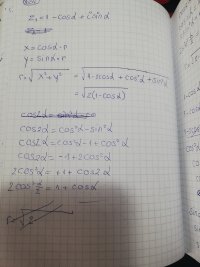 z₁ = 1 - cosα + i sinα
x = cosα · r
y = sinα · r
r = √x² + y² = √1 - 2cosα + cos²α + sin²α
= √2(1 - cosα)
cos2α =
cos2α = cos²α - sin²α
cos2α = cos²α - 1 + cos²α
cos2α = -1 + 2cos²α
2cos²α = 1 + cos2α
2cos²α/2 = 1 + cosα